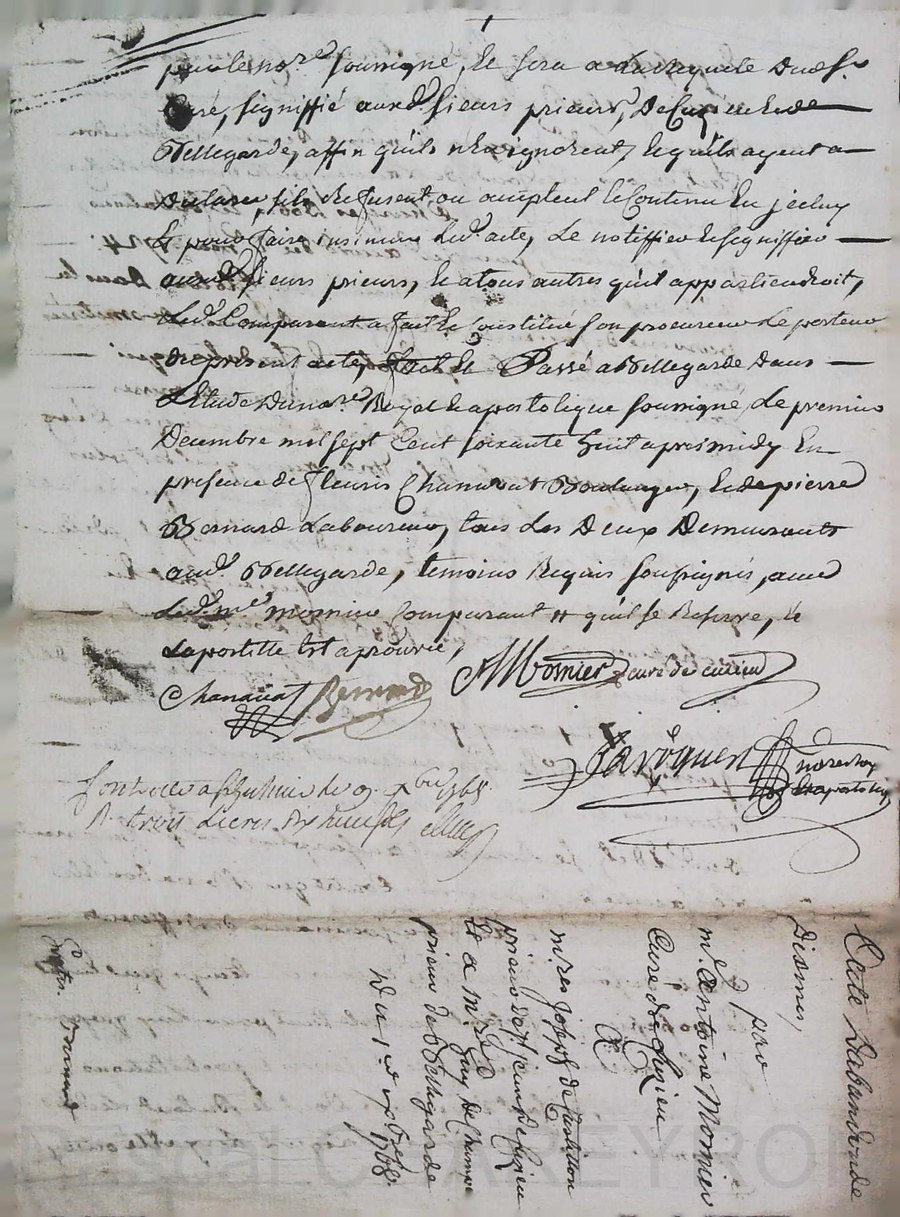 par le nore. soussigné, et sera a la Requete dud. Sr.
Curé, signiffié auxd. sieurs prieurs, De Cuzieu et de
Bellegarde, affin qu'ils n'en ignorent, et qu'ils ayent a
Declarer, s'ils Refusent ou acceptent le Contenu En jceluy
Et pour faire insinuer led. acte, Le notiffier et signiffier
auxd. sieurs prieurs, et a tous autres qu'il appartiendroit,
Led. Comparant a fait et Constitué son procureur Le porteur
du present acte, fait Et Passé a Bellegarde Dans
L'Etude Du nore. Royal et apostolique soussigné, Le premier
Decembre mil sept Cent soixante huit apres midy En
presence de fleuris Chanavat Boulanger, et de pierre
Bernard Laboureur, tous Les Deux Demeurants
aud. Bellegarde, temoins Requis soussignés, avec
Led. me. mornier Comparant # qu'il se Reserve, et
La postille Est aprouvée,
Chanavat Bernard AMornier curé de cuzieu
nore roy
et apostoliq
1768
Acte D'abandon de
Dismes,
par
me. Antoine Mornier
Curé de Cuzieu
A
mres Joseph de Castillon
prieur de Cuzieu
et a mre Guy De Champ
prieur de Bellegarde
Du 1er xbre
1768.